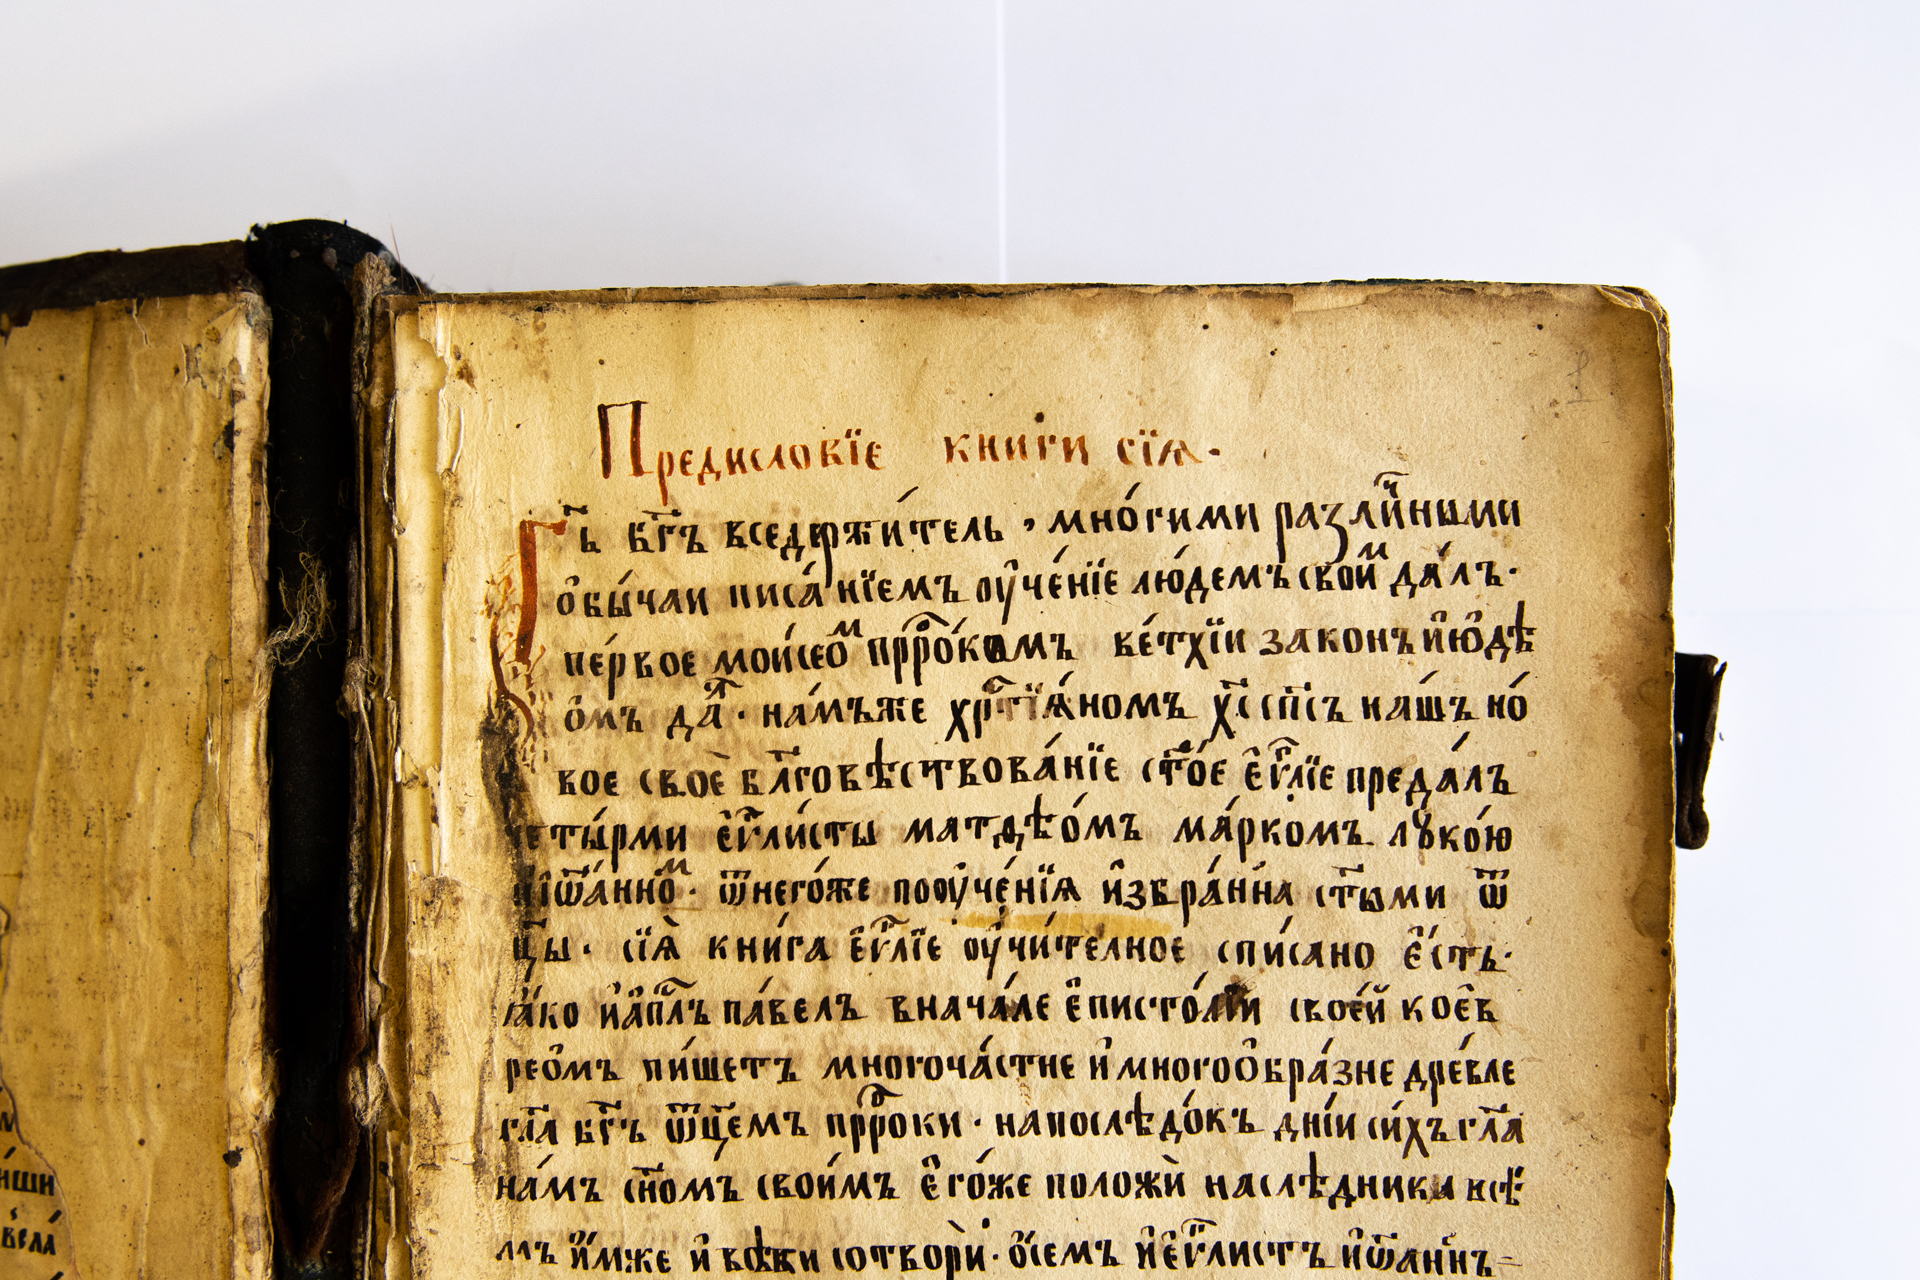 Предисловїе книги сїѧ·
Гь҃ бг҃ъ вседержи́тель, мно́гими разли́чными
ѻ҆бы́чаи писа́нїемъ оу҆че́нїе лю́демъ свои́м да́лъ·
пе́рвое мои҆сеѻ҆м прⷪ҇ро́комъ ве́тхїи законъ и҆ю҆дѣ
ѻ҆мъ да́л· на́мъже хрⷭ҇тїѧ́номъ хс҃ сп҃съ нашъ но́
вое своѐ бл҃говѣствова́нїе ст҃о́е є҆ѵⷢ҇лїе преда́лъ
четы́рми є҆ѵⷢ҇ли́сты матѳѣо́мъ ма́ркомъ лꙋко́ю
и҆ і҆ѡа́нном· ѿнего́же пооу҆че́нїѧ и҆збра́нна ст҃ыми ѿ
ц҃ы· сїѧ̀ кни́га є҆ѵⷢ҇лїе оу҆чи́телное спи́сано є҆́сть·
ꙗ҆́ко и҆ а҆пⷭ҇лъ па́велъ внача́ле є҆писто́лїи свое́й ко є҆в
рео́мъ пи́шетъ многоча́стне и҆ многоѻ҆бра́зне дре́вле
гл҃а бг҃ъ ѿц҃е́мъ прⷪ҇ро́ки· напослѣдо́къ дні́и си́хъ гл҃а
на́мъ сн҃омъ свои́мъ є҆го́же положѝ наслѣ́дника всѣ̑
мъ и҆́мже и҆ вѣ́ки сотворѝ· ѻ҆ се́мъ и҆ є҆ѵⷢ҇листъ и҆ ѡ҆а́ннъ
м
и́ши
ве́ла